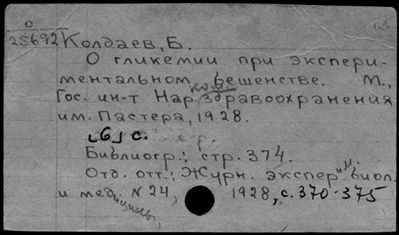 О
25692 Колдаев, Б.
О гликемии при экспери-
ментальном бешенстве. М.,
Гос. ин-т Нар. ком. здравоохранения
им. Пастера, 1928.
[6] с.
Библиогр.: стр. 374.
Отд. отт.: Журн. экспер. биол.
и мед. № 24, 1928, с. 370-375